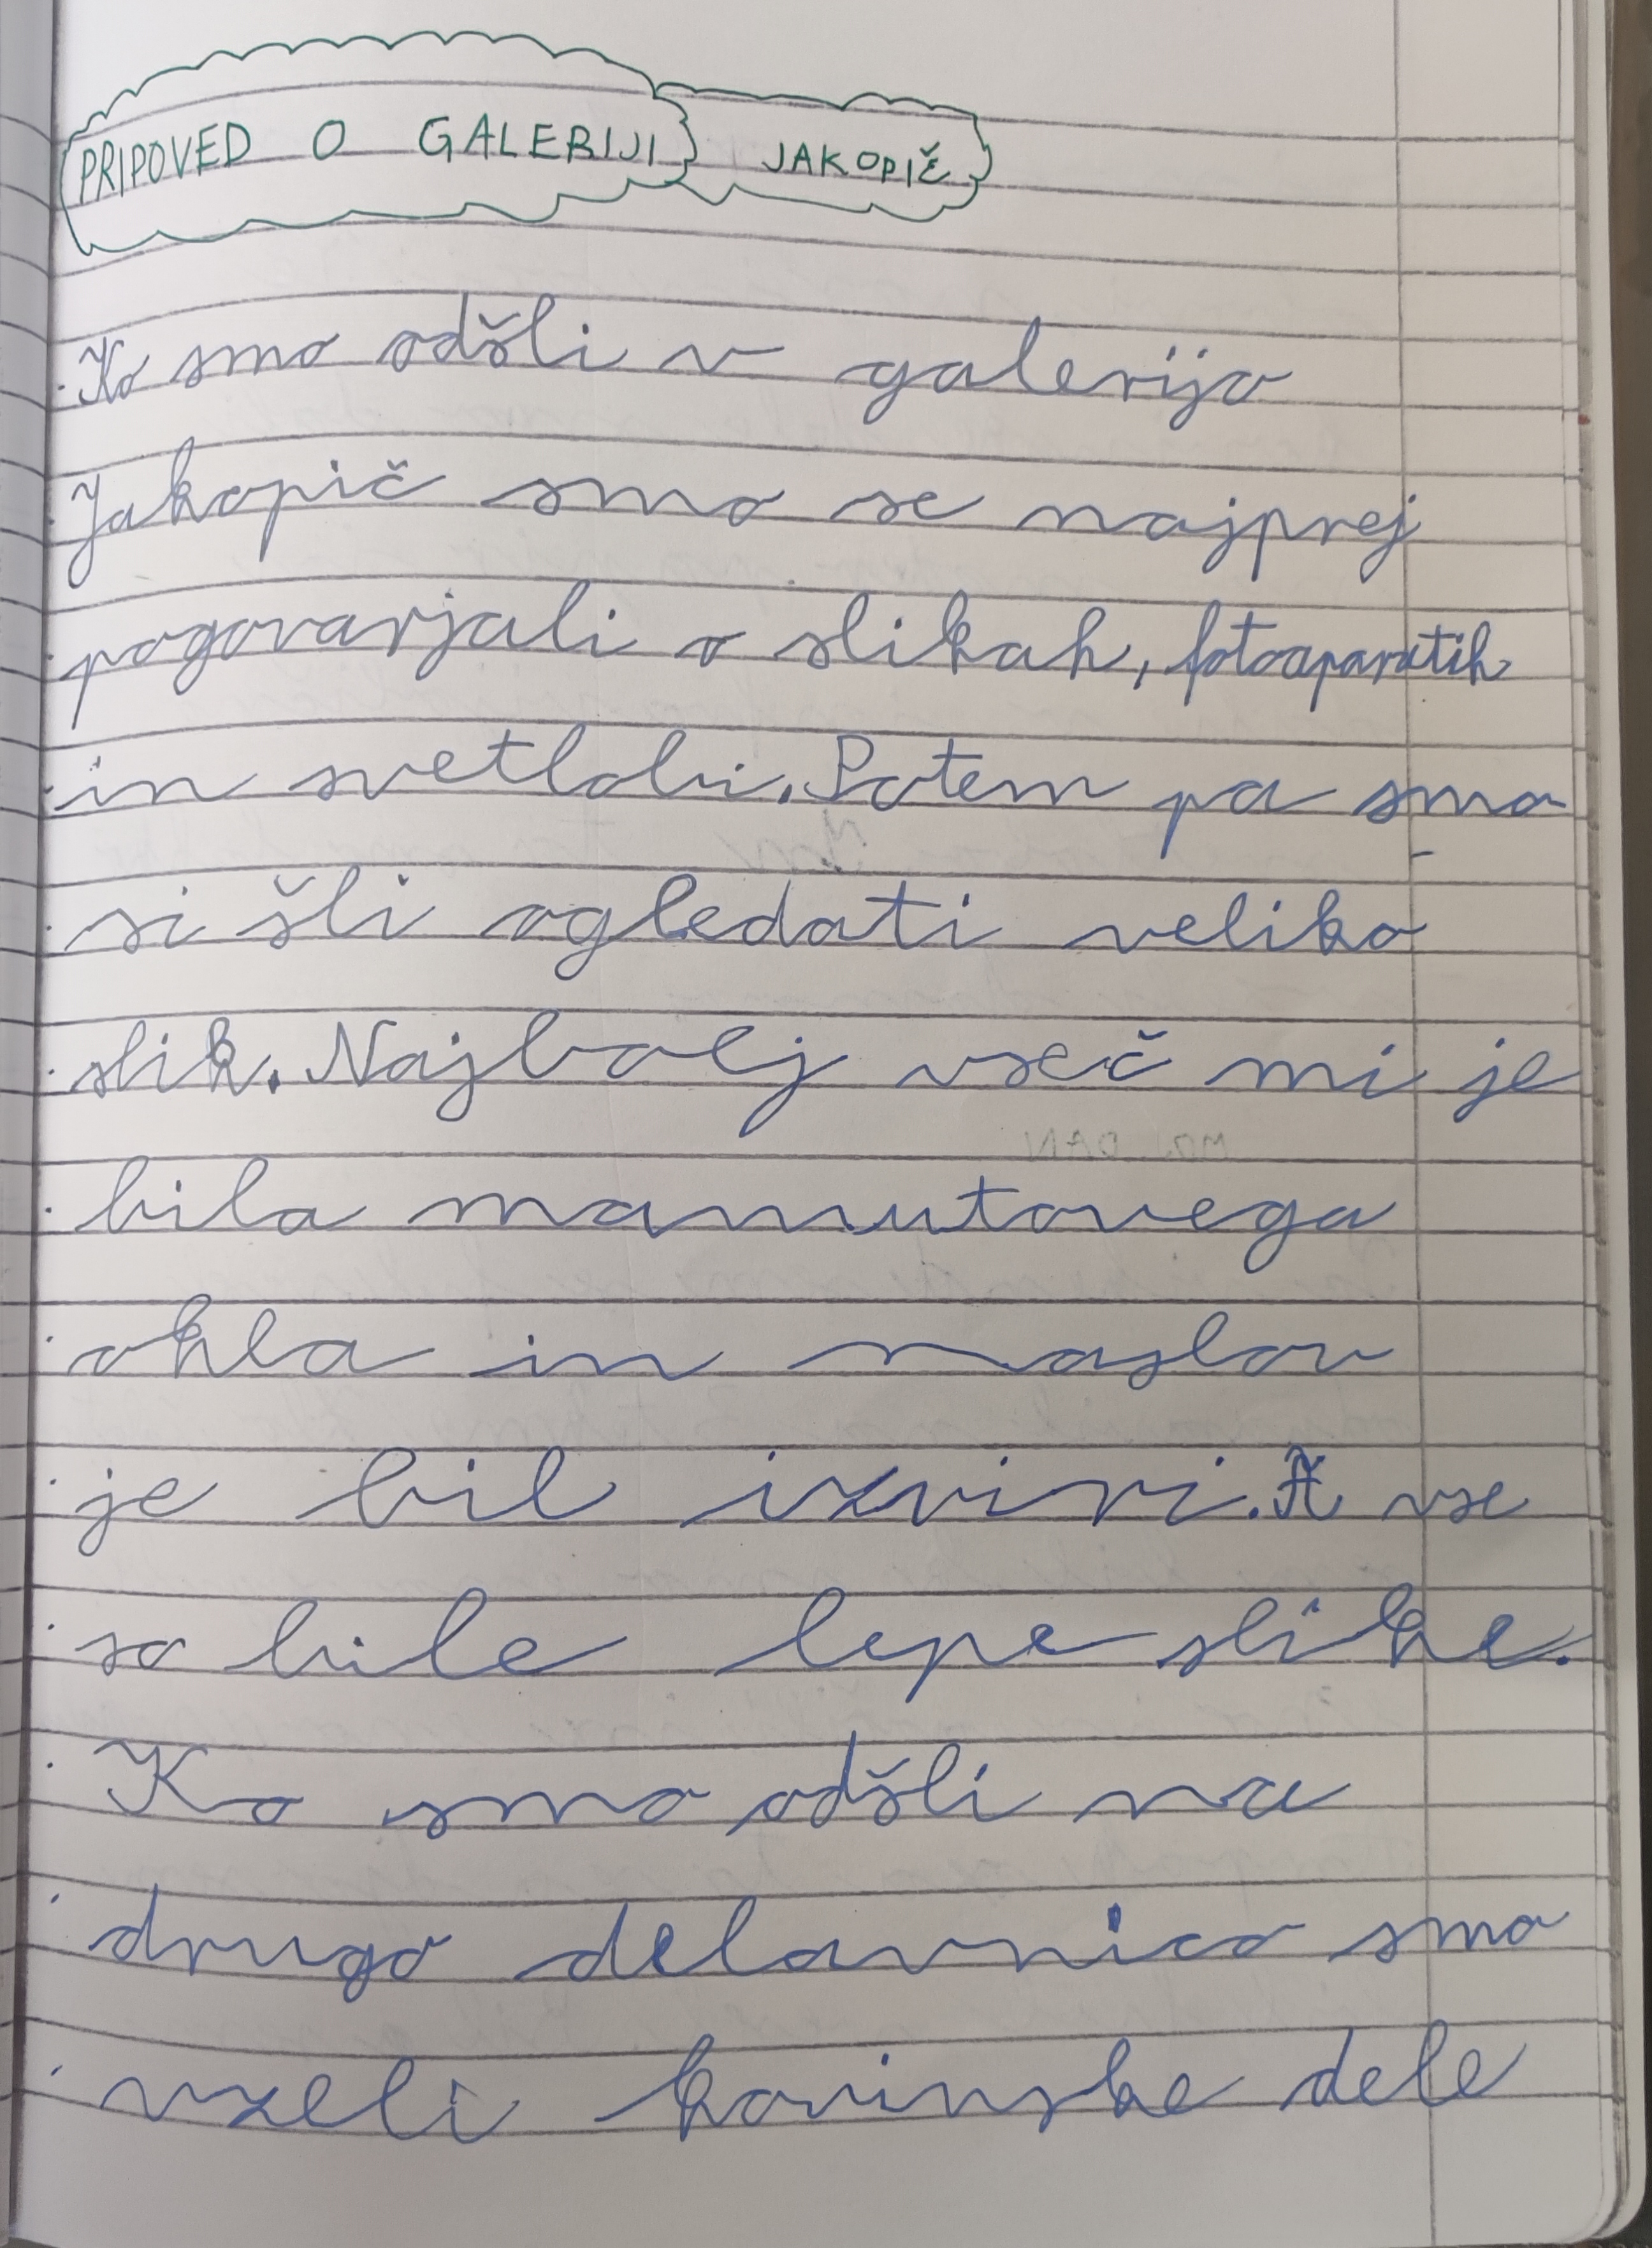 PRIPOVED O GALERIJI JAKOPIČ
Ko smo odšli v galerijo
Jakopič smo se najprej
pogovarjali o slikah, fotoaparatih
in svetlobi. Potem pa smo
si šli ogledati veliko
slik. Najbolj všeč mi je
bila mamutovega
okla in naslov
je bil izviri. A vse
so bile lepe slike.
Ko smo odšli na
drugo delavnico smo
vzeli kovinske dele